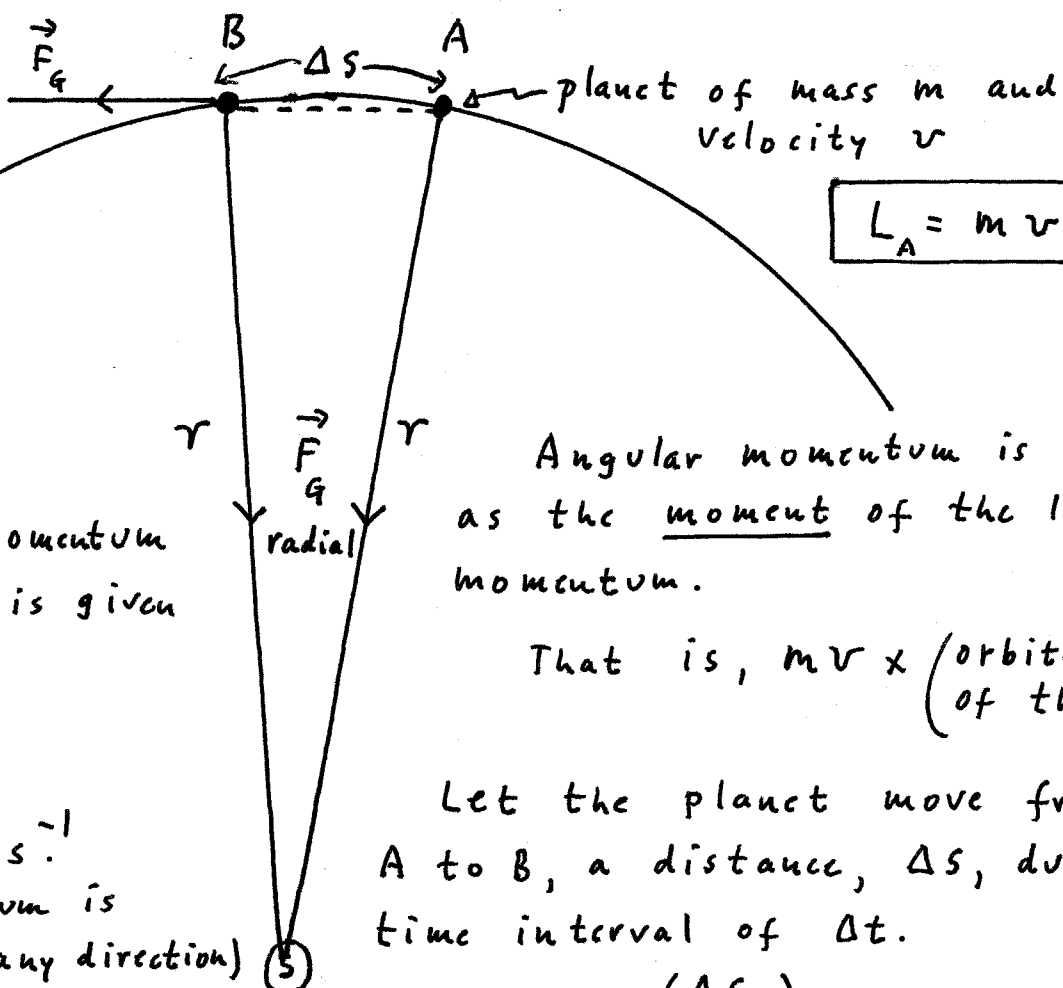 F⃗_G
B
Δs
A
planet of mass m and
velocity v
L_A = m v
r
F⃗_G
r
radial
Angular momentum is
as the moment of the l
momentum.
omentum
is given
That is, mv × (orbit
of th
Let the planet move fr
A to B, a distance, Δs, du
time interval of Δt.
s⁻¹.
um is
any direction)
S
(Δs)